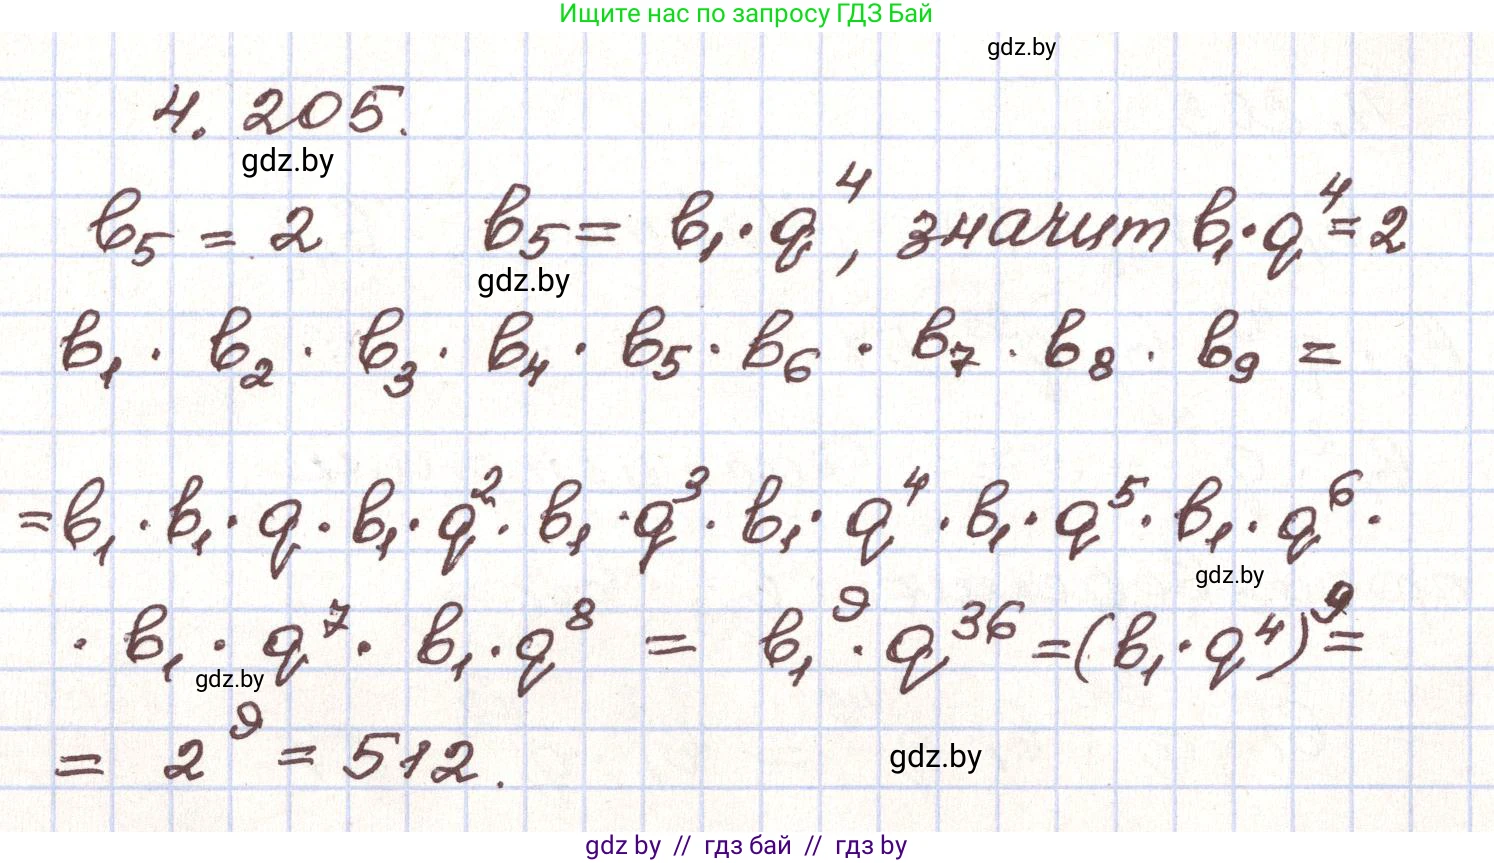 Ищите нас по запросу ГДЗ Бай
gdz.by
4. 205.
gdz.by
b₅ = 2 b₅ = b₁ · q⁴, значит b₁ · q⁴ = 2
gdz.by
b₁ · b₂ · b₃ · b₄ · b₅ · b₆ · b₇ · b₈ · b₉ =
= b₁ · b₁ · q · b₁ · q² · b₁ · q³ · b₁ · q⁴ · b₁ · q⁵ · b₁ · q⁶ ·
gdz.by
· b₁ · q⁷ · b₁ · q⁸ = b₁⁹ · q³⁶ = (b₁ · q⁴)⁹ =
gdz.by
= 2⁹ = 512.
gdz.by
gdz by // гдз бай // гдз by